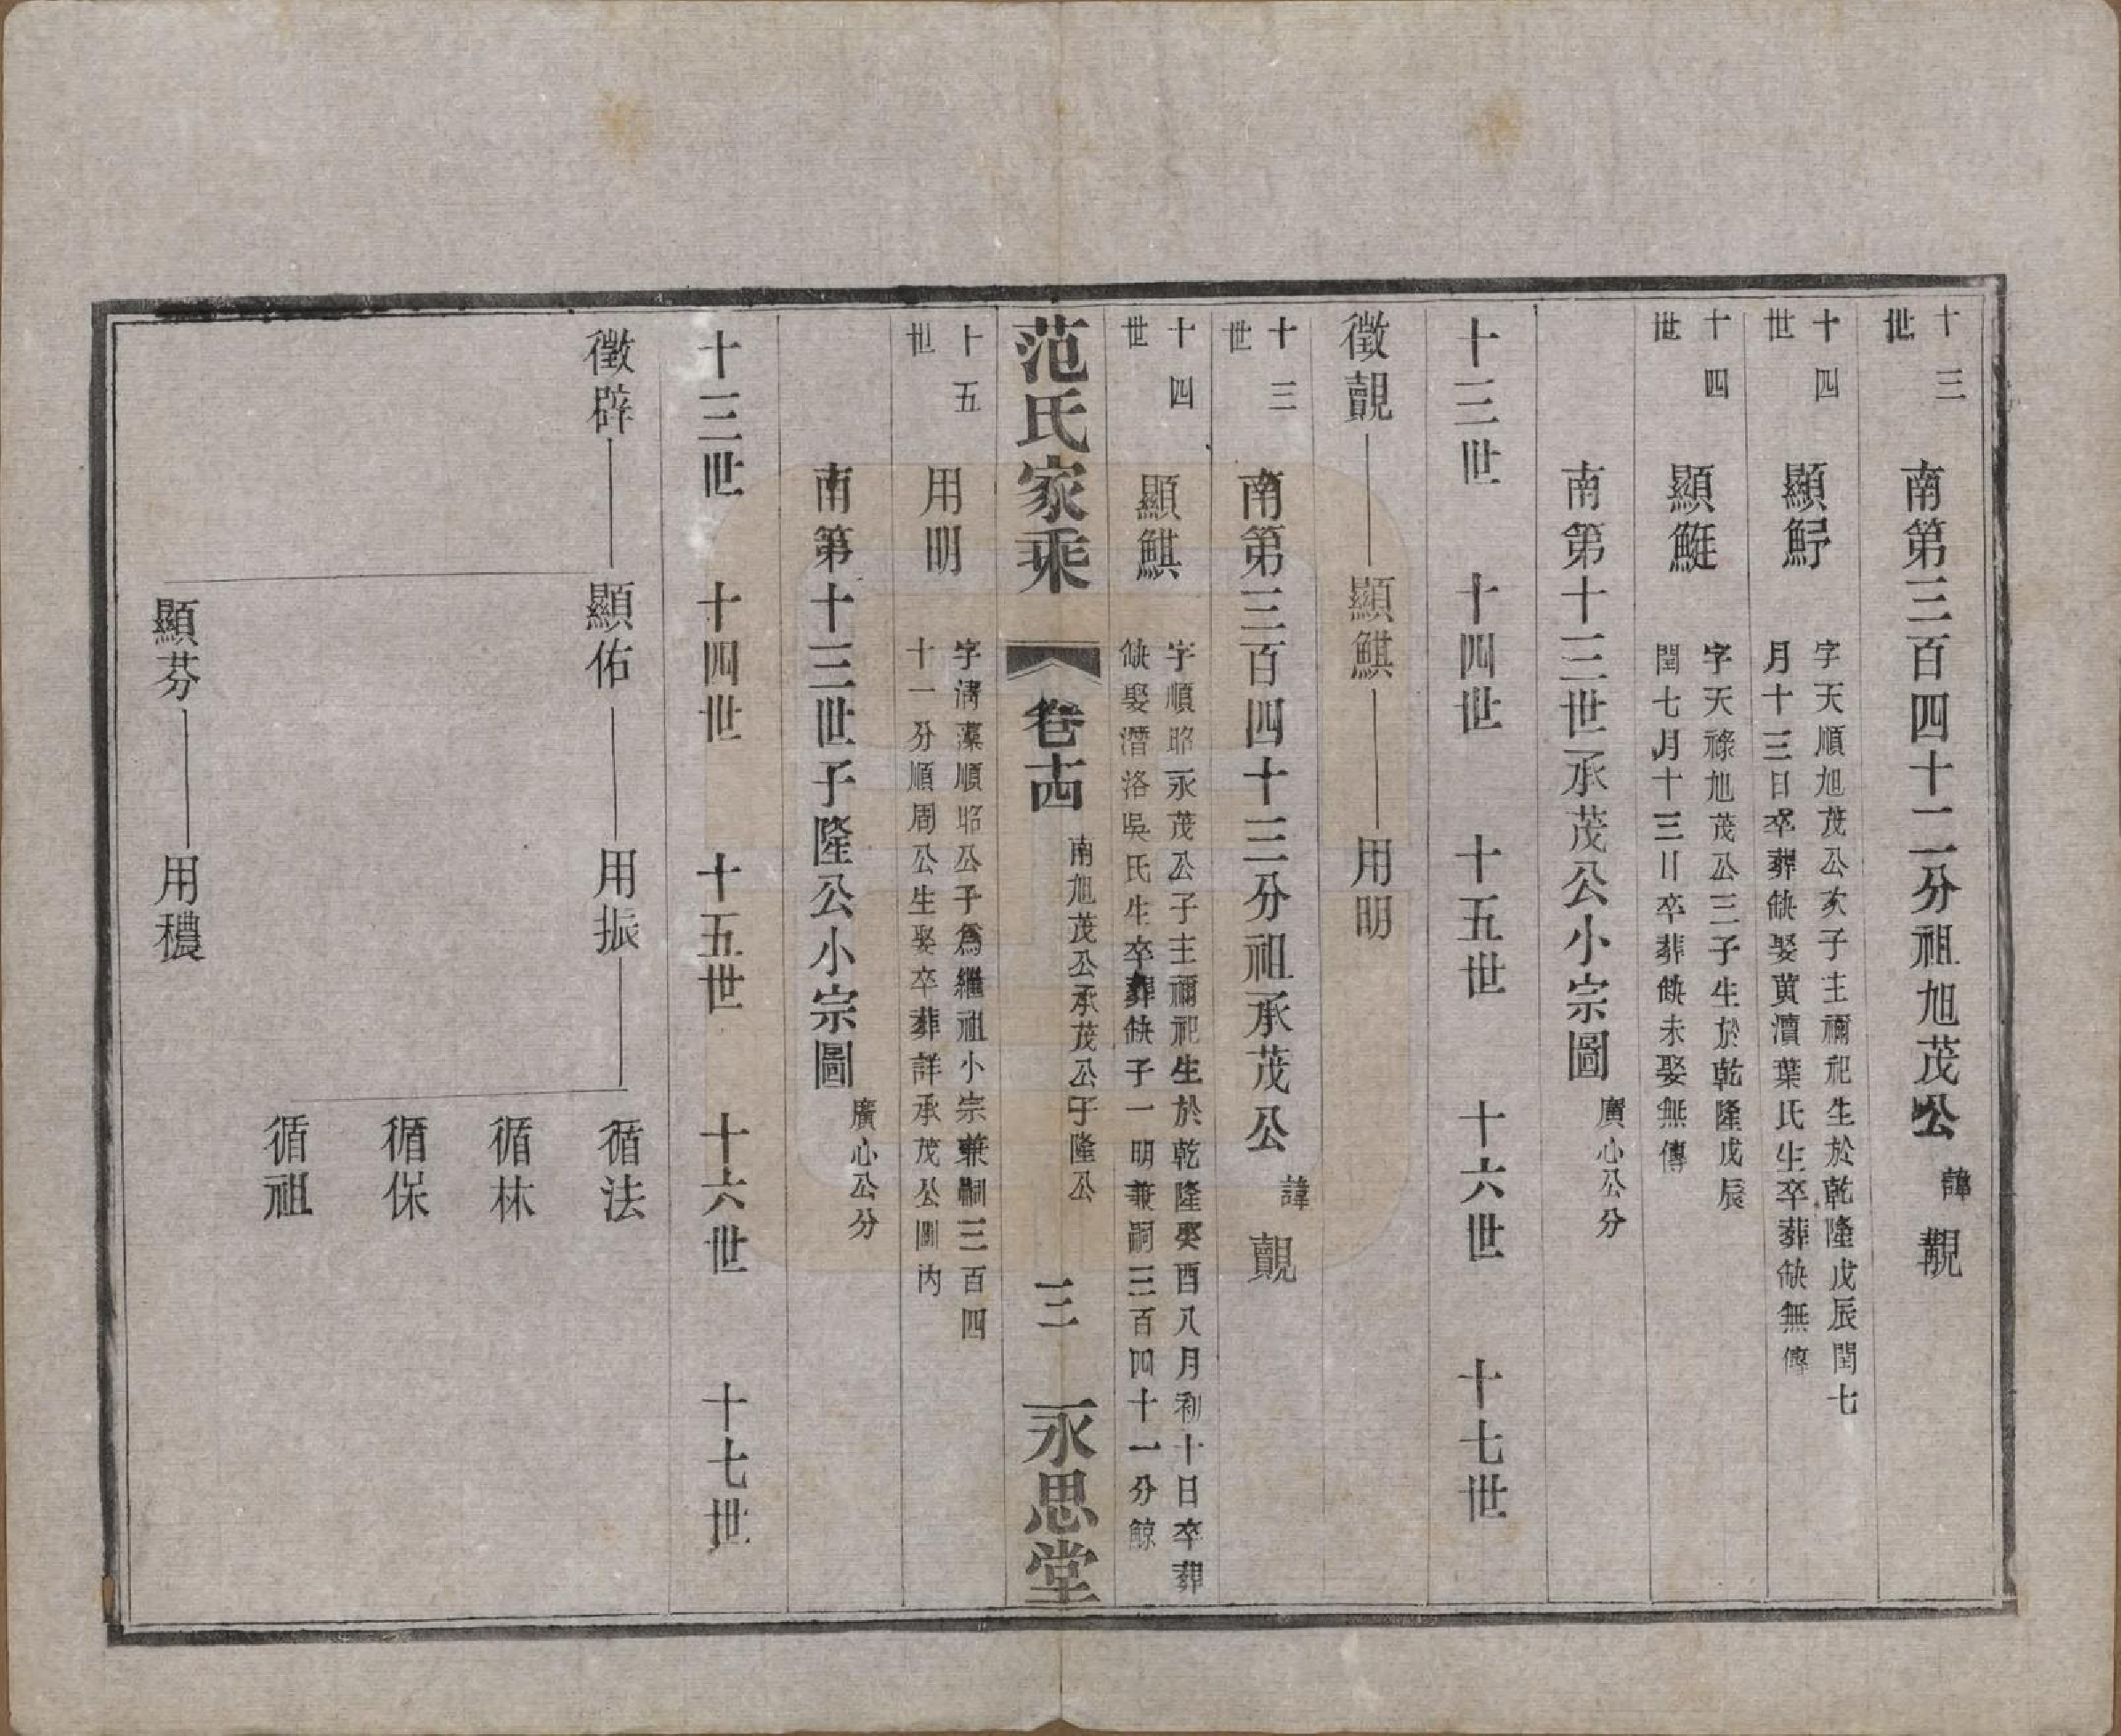 十三世 南第三百四十二分祖旭茂公 諱 覲
十四世 顯䱷 字天順旭茂公次子主禰祀生於乾隆戊辰閏七
月十三日卒葬缺娶黃瀆葉氏生卒葬缺無傳
十四世 顯 字天祿旭茂公三子生於乾隆戊辰
閏七月十三日卒葬缺未娶無傳
南第十三世承茂公小宗圖 廣心公分
十三世 十四世 十五世 十六世 十七世
徵覿 顯鯕 用明
十三世 南第三百四十三分祖承茂公 諱 覿
十四世 顯鯕 字順昭承茂公子主禰祀生於乾隆癸酉八月初十日卒葬
缺娶潛洛吳氏生卒葬缺子一明兼嗣三百四十一分鯨
范氏家乘 卷十四 南旭茂公承茂公子隆公 三 永思堂
十五世 用明 字清藻順昭公子為繼祖小宗兼嗣三百四
十一分順周公生娶卒葬詳承茂公圖內
南第十三世子隆公小宗圖 廣心公分
十三世 十四世 十五世 十六世 十七世
徵辟 顯佑 用振 循法
循林
循保
循祖
顯芬 用穠